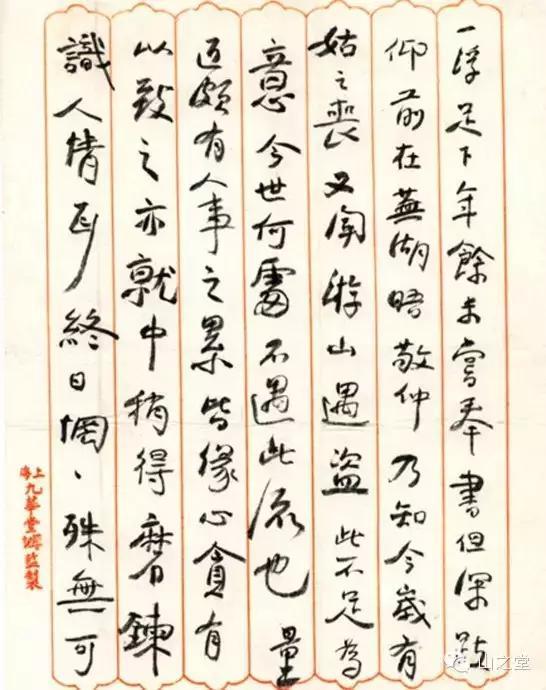 一浮足下年餘未嘗奉書但深跂
仰前在蕪湖晤敬仲乃知今歲有
姑之喪又聞游山遇盜此不足為
意今世何處不遇此流也量
近頗有人事之累皆緣心貪有
以致之亦就中稍得磨鍊
識人情耳終日惘、殊無可
上海九華堂監製
山之堂